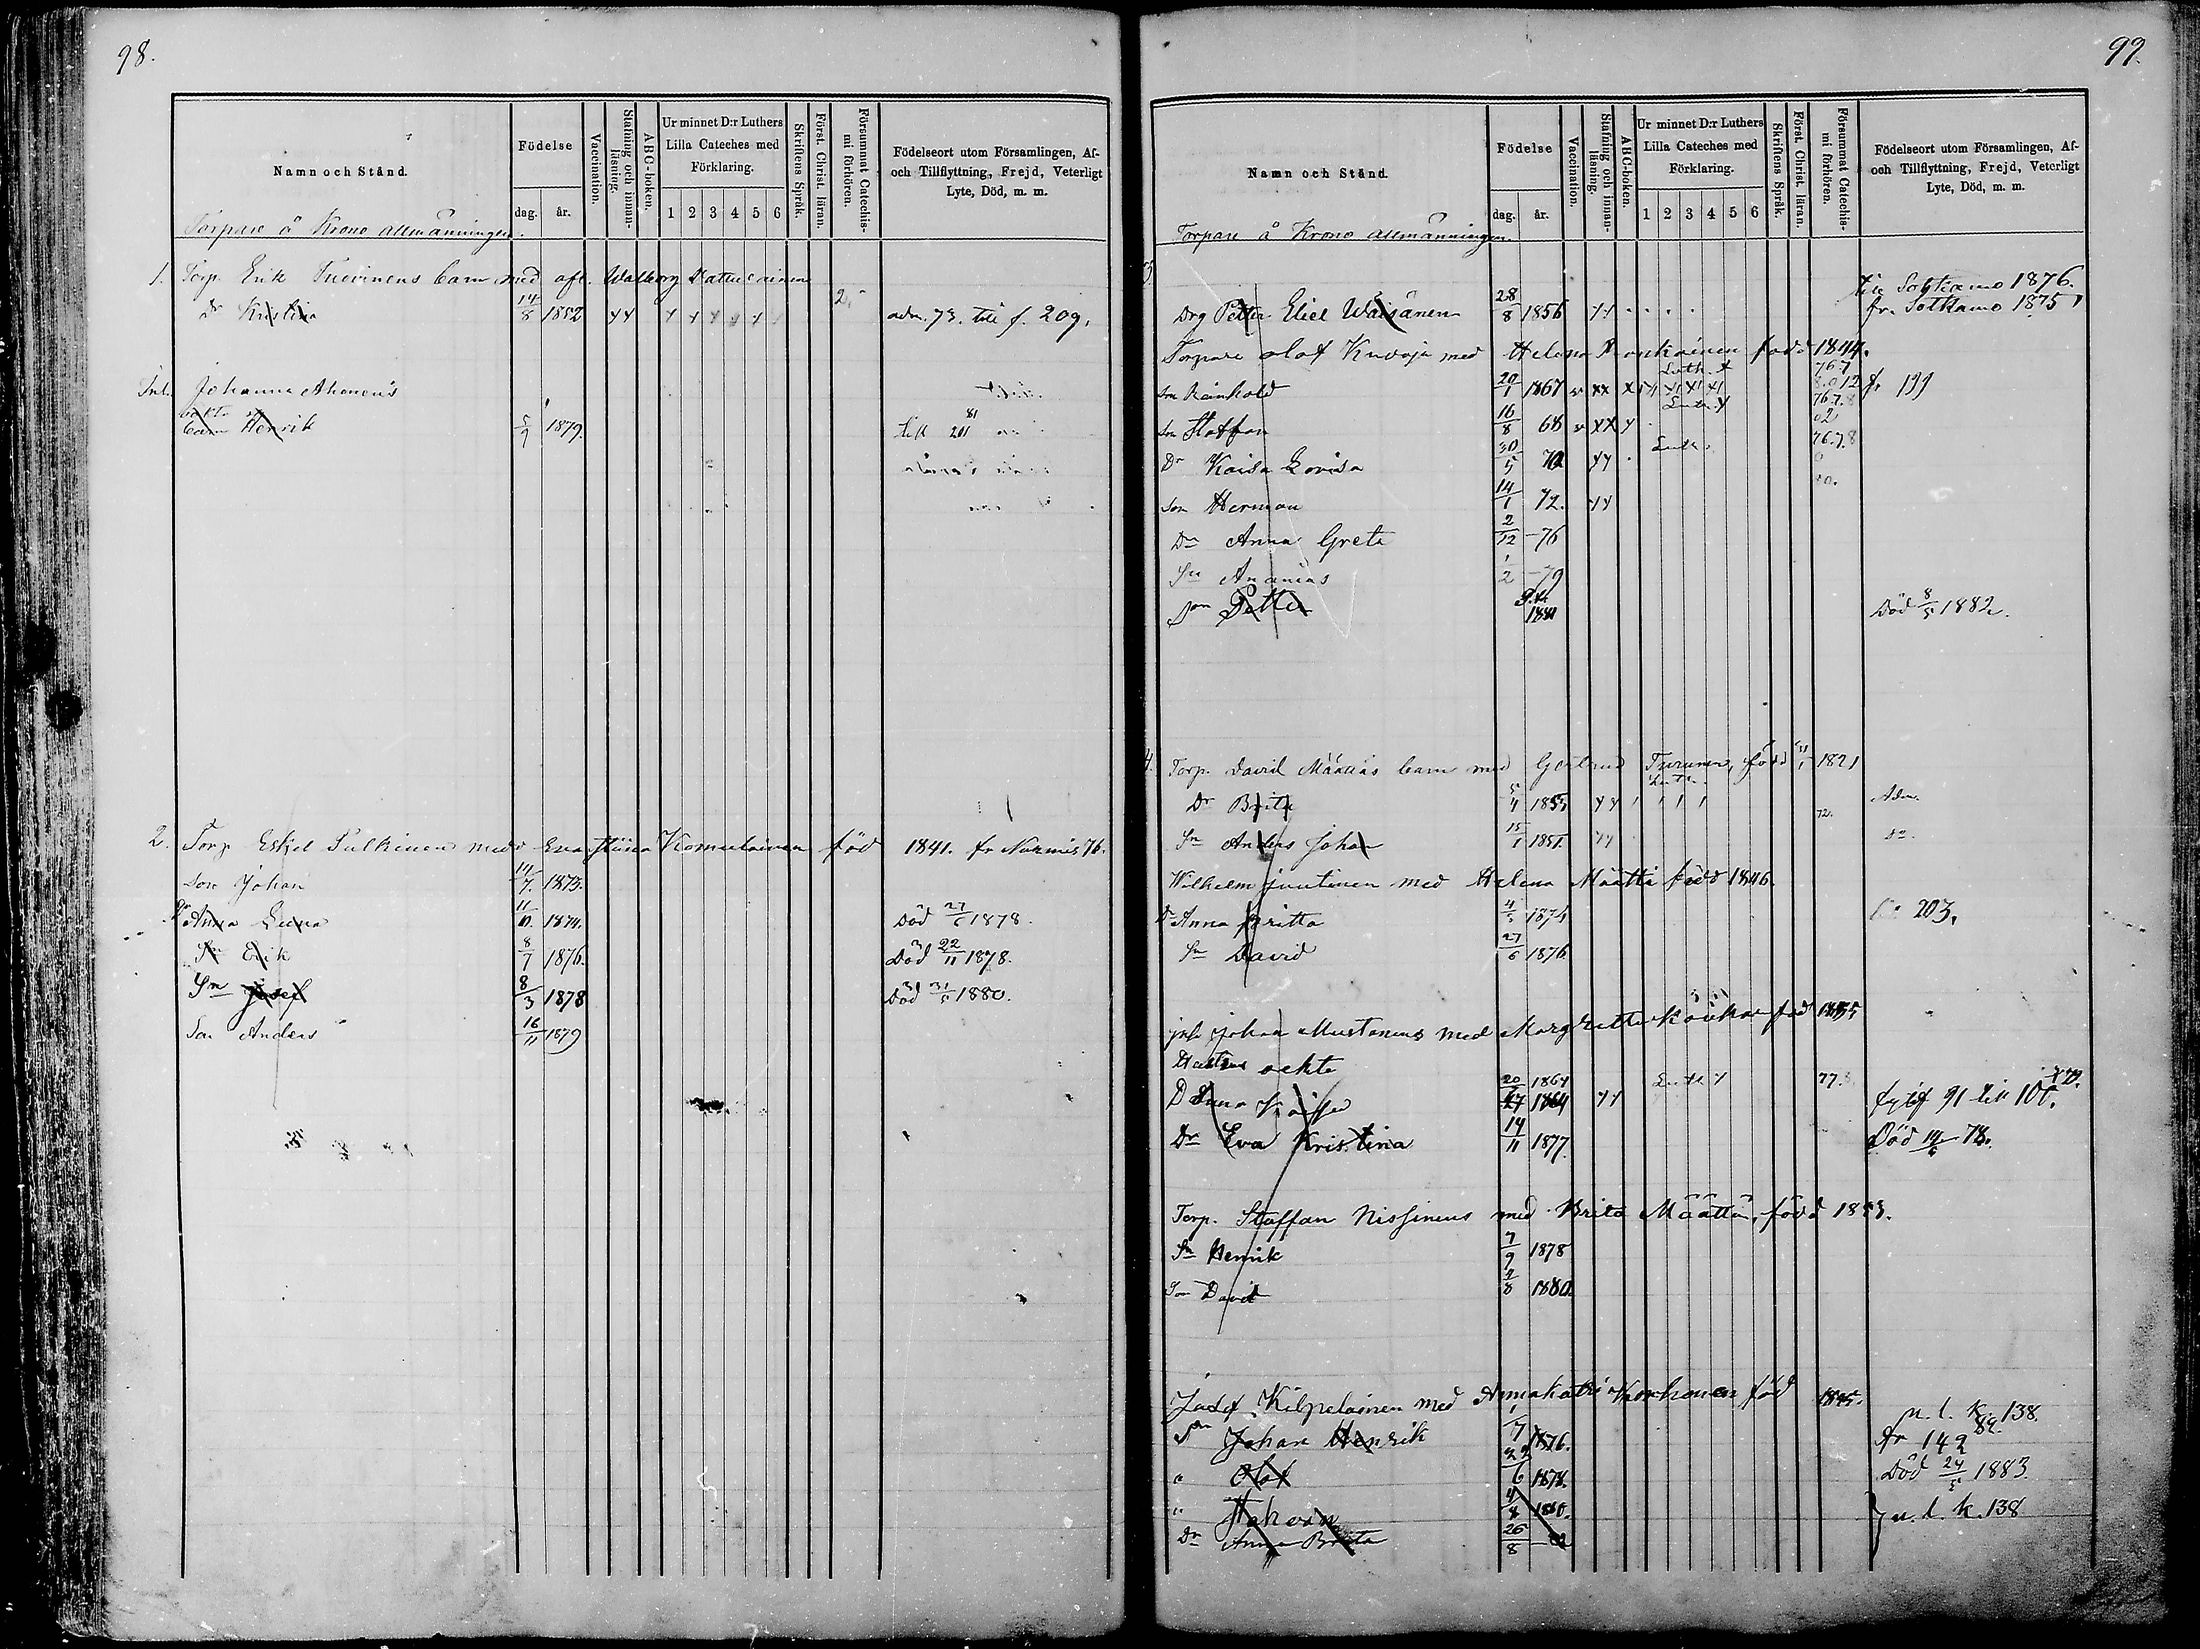 98.
Namn och Stånd.
Födelse
dag. år.
Vaccination.
Stafning och innan-läsning.
ABC-boken.
Ur minnet D:r Luthers Lilla Cateches med Förklaring.
1 2 3 4 5 6
Skriftens Språk.
Först. Christ. läran.
Försummat Catechis-mi förhören.
Födelseort utom Församlingen, Af- och Tillflyttning, Frejd, Veterligt Lyte, Död, m. m.
Torpare å Krono allmänningen.
1. Torp. Erik Tuovinens barn med afl. Walborg
Dr Kristina 14/8 1852 adm. 73. till f. 209.
Inh. Johanna Ahonen's
oäkta barn Henrik 5/9 1879. till 201
2. Torp Eskel Pulkinen med Eva Stiina Komulainen född 1841. fr Nurmis 76.
Son Johan 14/7 1873.
Dr Anna Leena 1874. Död 27/6 1878.
Sn Erik 8/7 1876. Död 22/11 1878.
Sn Josef 8/3 1878 Död 31/5 1880.
Son Anders 16/11 1879
99.
Namn och Stånd.
Födelse
dag. år.
Vaccination.
Stafning och innan-läsning.
ABC-boken.
Ur minnet D:r Luthers Lilla Cateches med Förklaring.
1 2 3 4 5 6
Skriftens Språk.
Först. Christ. läran.
Försummat Catechis-mi förhören.
Födelseort utom Församlingen, Af- och Tillflyttning, Frejd, Veterligt Lyte, Död, m. m.
Torpare å Krono allmänningen.
3.
till Sotkamo 1876.
Drg Petter Eliel Wäisänen 28/8 1856 fr. Sotkamo 1875
Torpare Olof Kuvaja med Helena Ronkainen född 1844.
Son Reinhold 20/1 1867 fr 199
Son Staffan 16/8 68
Dr Kaisa Lovisa 30/5 70
Son Herman 14/1 72.
Dr Anna Greta 2/12 -76
Sn Ananias 1/2 -79
Son Petter 1881 Död 8/5 1882.
4. Torp. David Määttäs barn med Gertrud Turunen, född 1821
Dr Brita 5/4 1855 Adm.
Sn Anders Johan 15/1 1851. Do.
Wilhelm Juntinen med Helena Määttä född 1846
Dr Anna Britta 4/5 1874 203.
Sn David 27/6 1876
Inh Johan Mustonens med Margretta född 1835
Hustrus oekta
D Anna Kaisa 20 1864 91 till 100.
Dr Eva Kristina 14/11 1877. Död 14/6 78.
Torp. Staffan Nissinens med Brita Määttä, född 1853.
Sn Henrik 7/9 1878
Son David 2/8 1880.
Josef Kilpelainen med Annakatri Korhonen född 1845.
n. l. k. 138
Sn Johan Henrik 1/7 1876. fr 142 82.
" Olof 22/6 1878. Död 24/5 1883
" Håkan 4/4 1880. n. l. k. 138
Dr Anna Brita 26/8 82